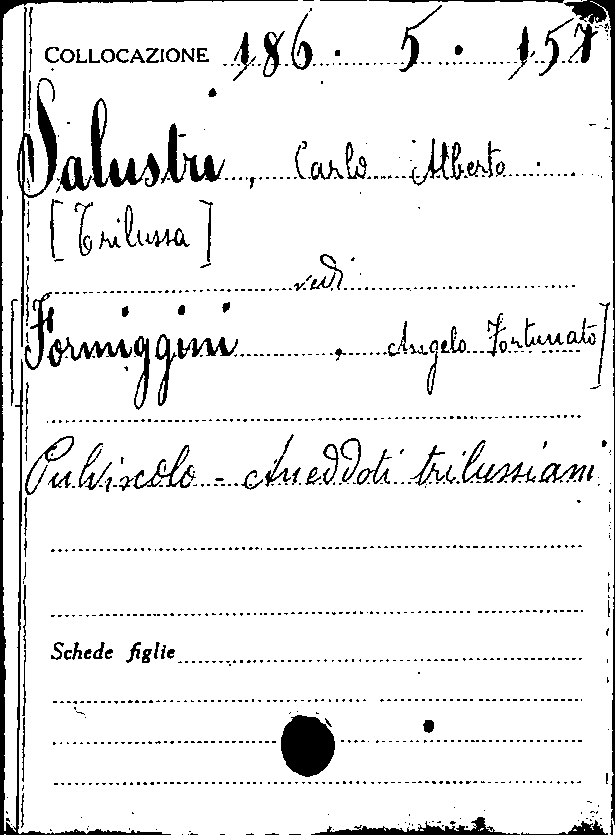 COLLOCAZIONE 186. 5. 157
Salustri, Carlo Alberto.
[Trilussa]
vedi
[Formiggini, Angelo Fortunato]
Pulviscolo - Aneddoti trilussiani
Schede figlie